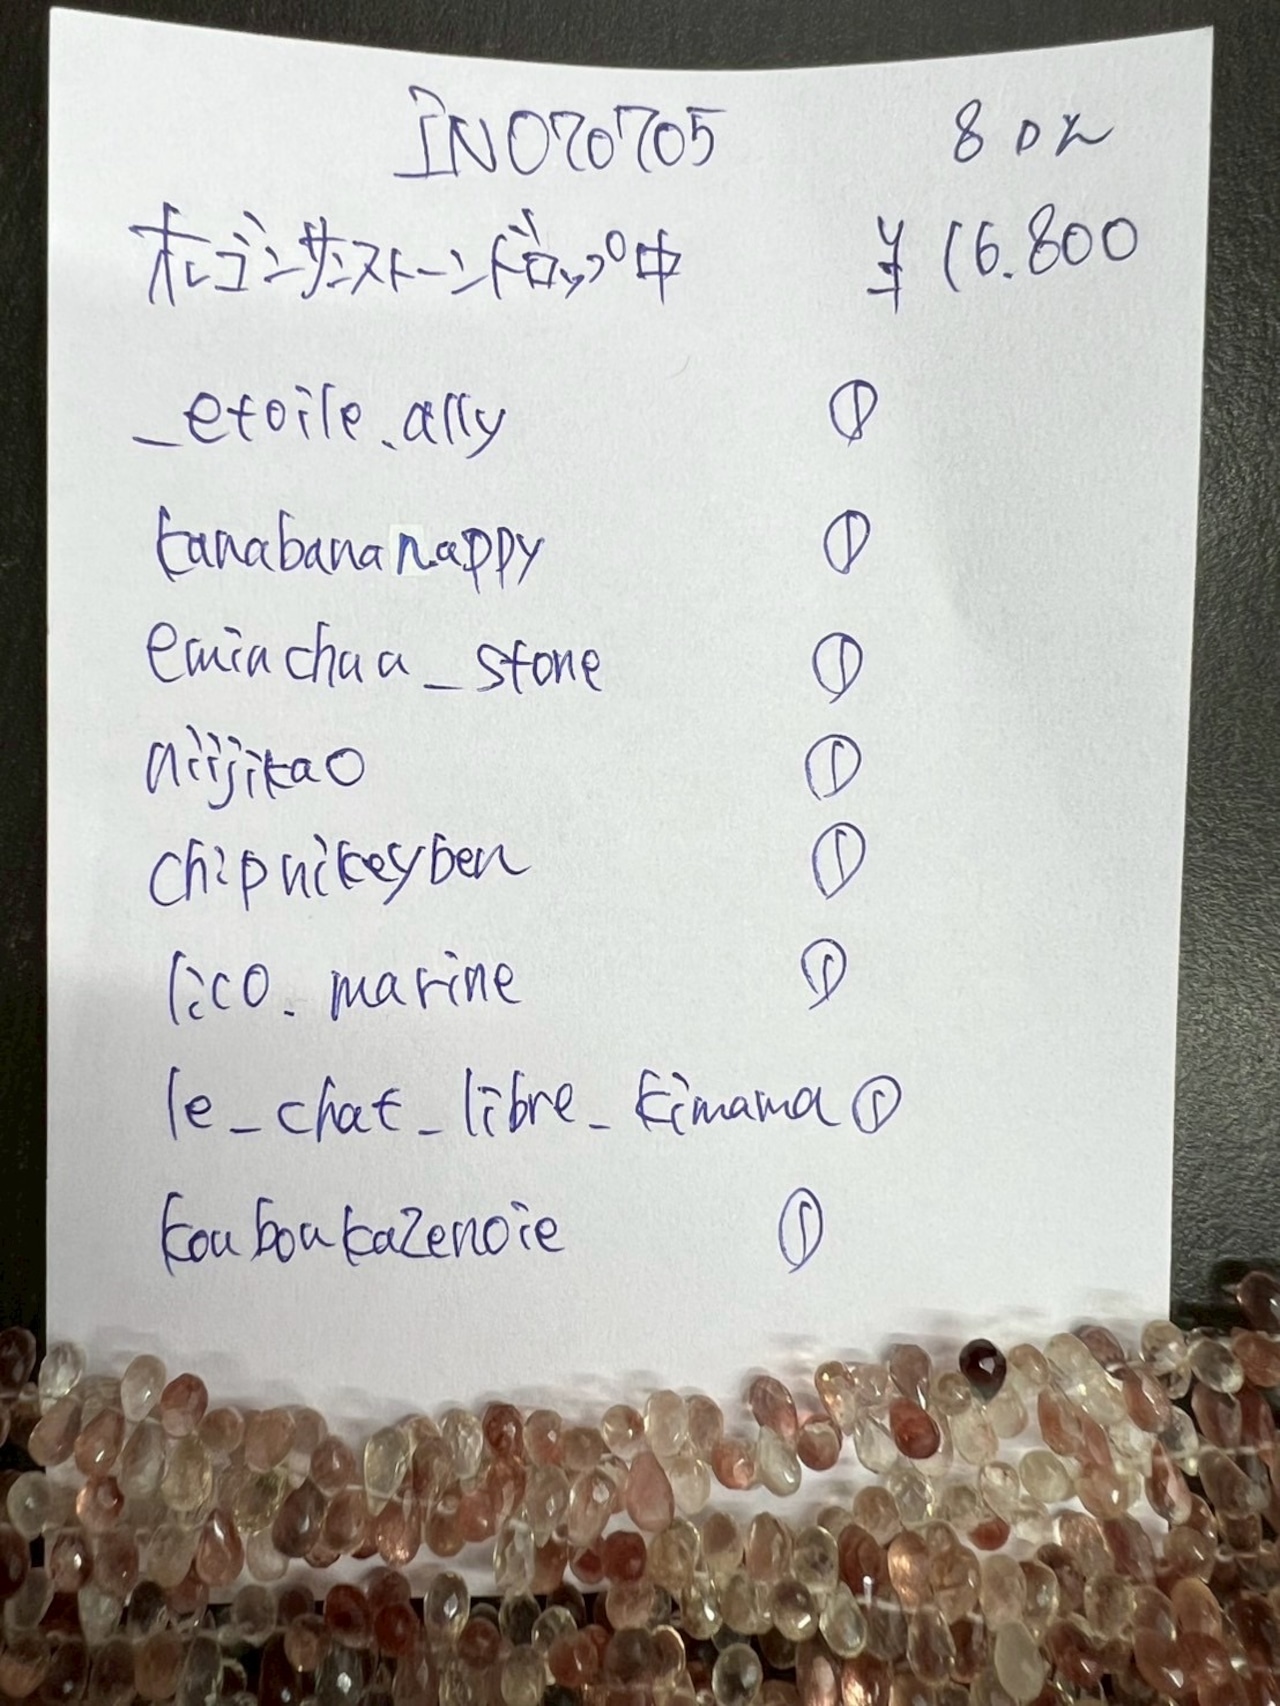 INO70705 8 pz
オレゴンサンストーンドロップ中 ¥16.800
_etoile.ally ①
kanabananappy ①
eminchaa_stone ①
aiijikao ①
chipnikeyben ①
lico.marine ①
le_chat_libre_kimama ①
kouboukazenoie ①